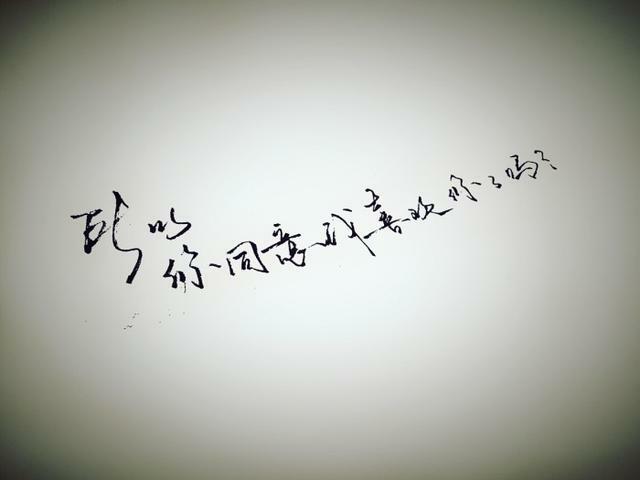 所以
你同意我喜欢你了吗?